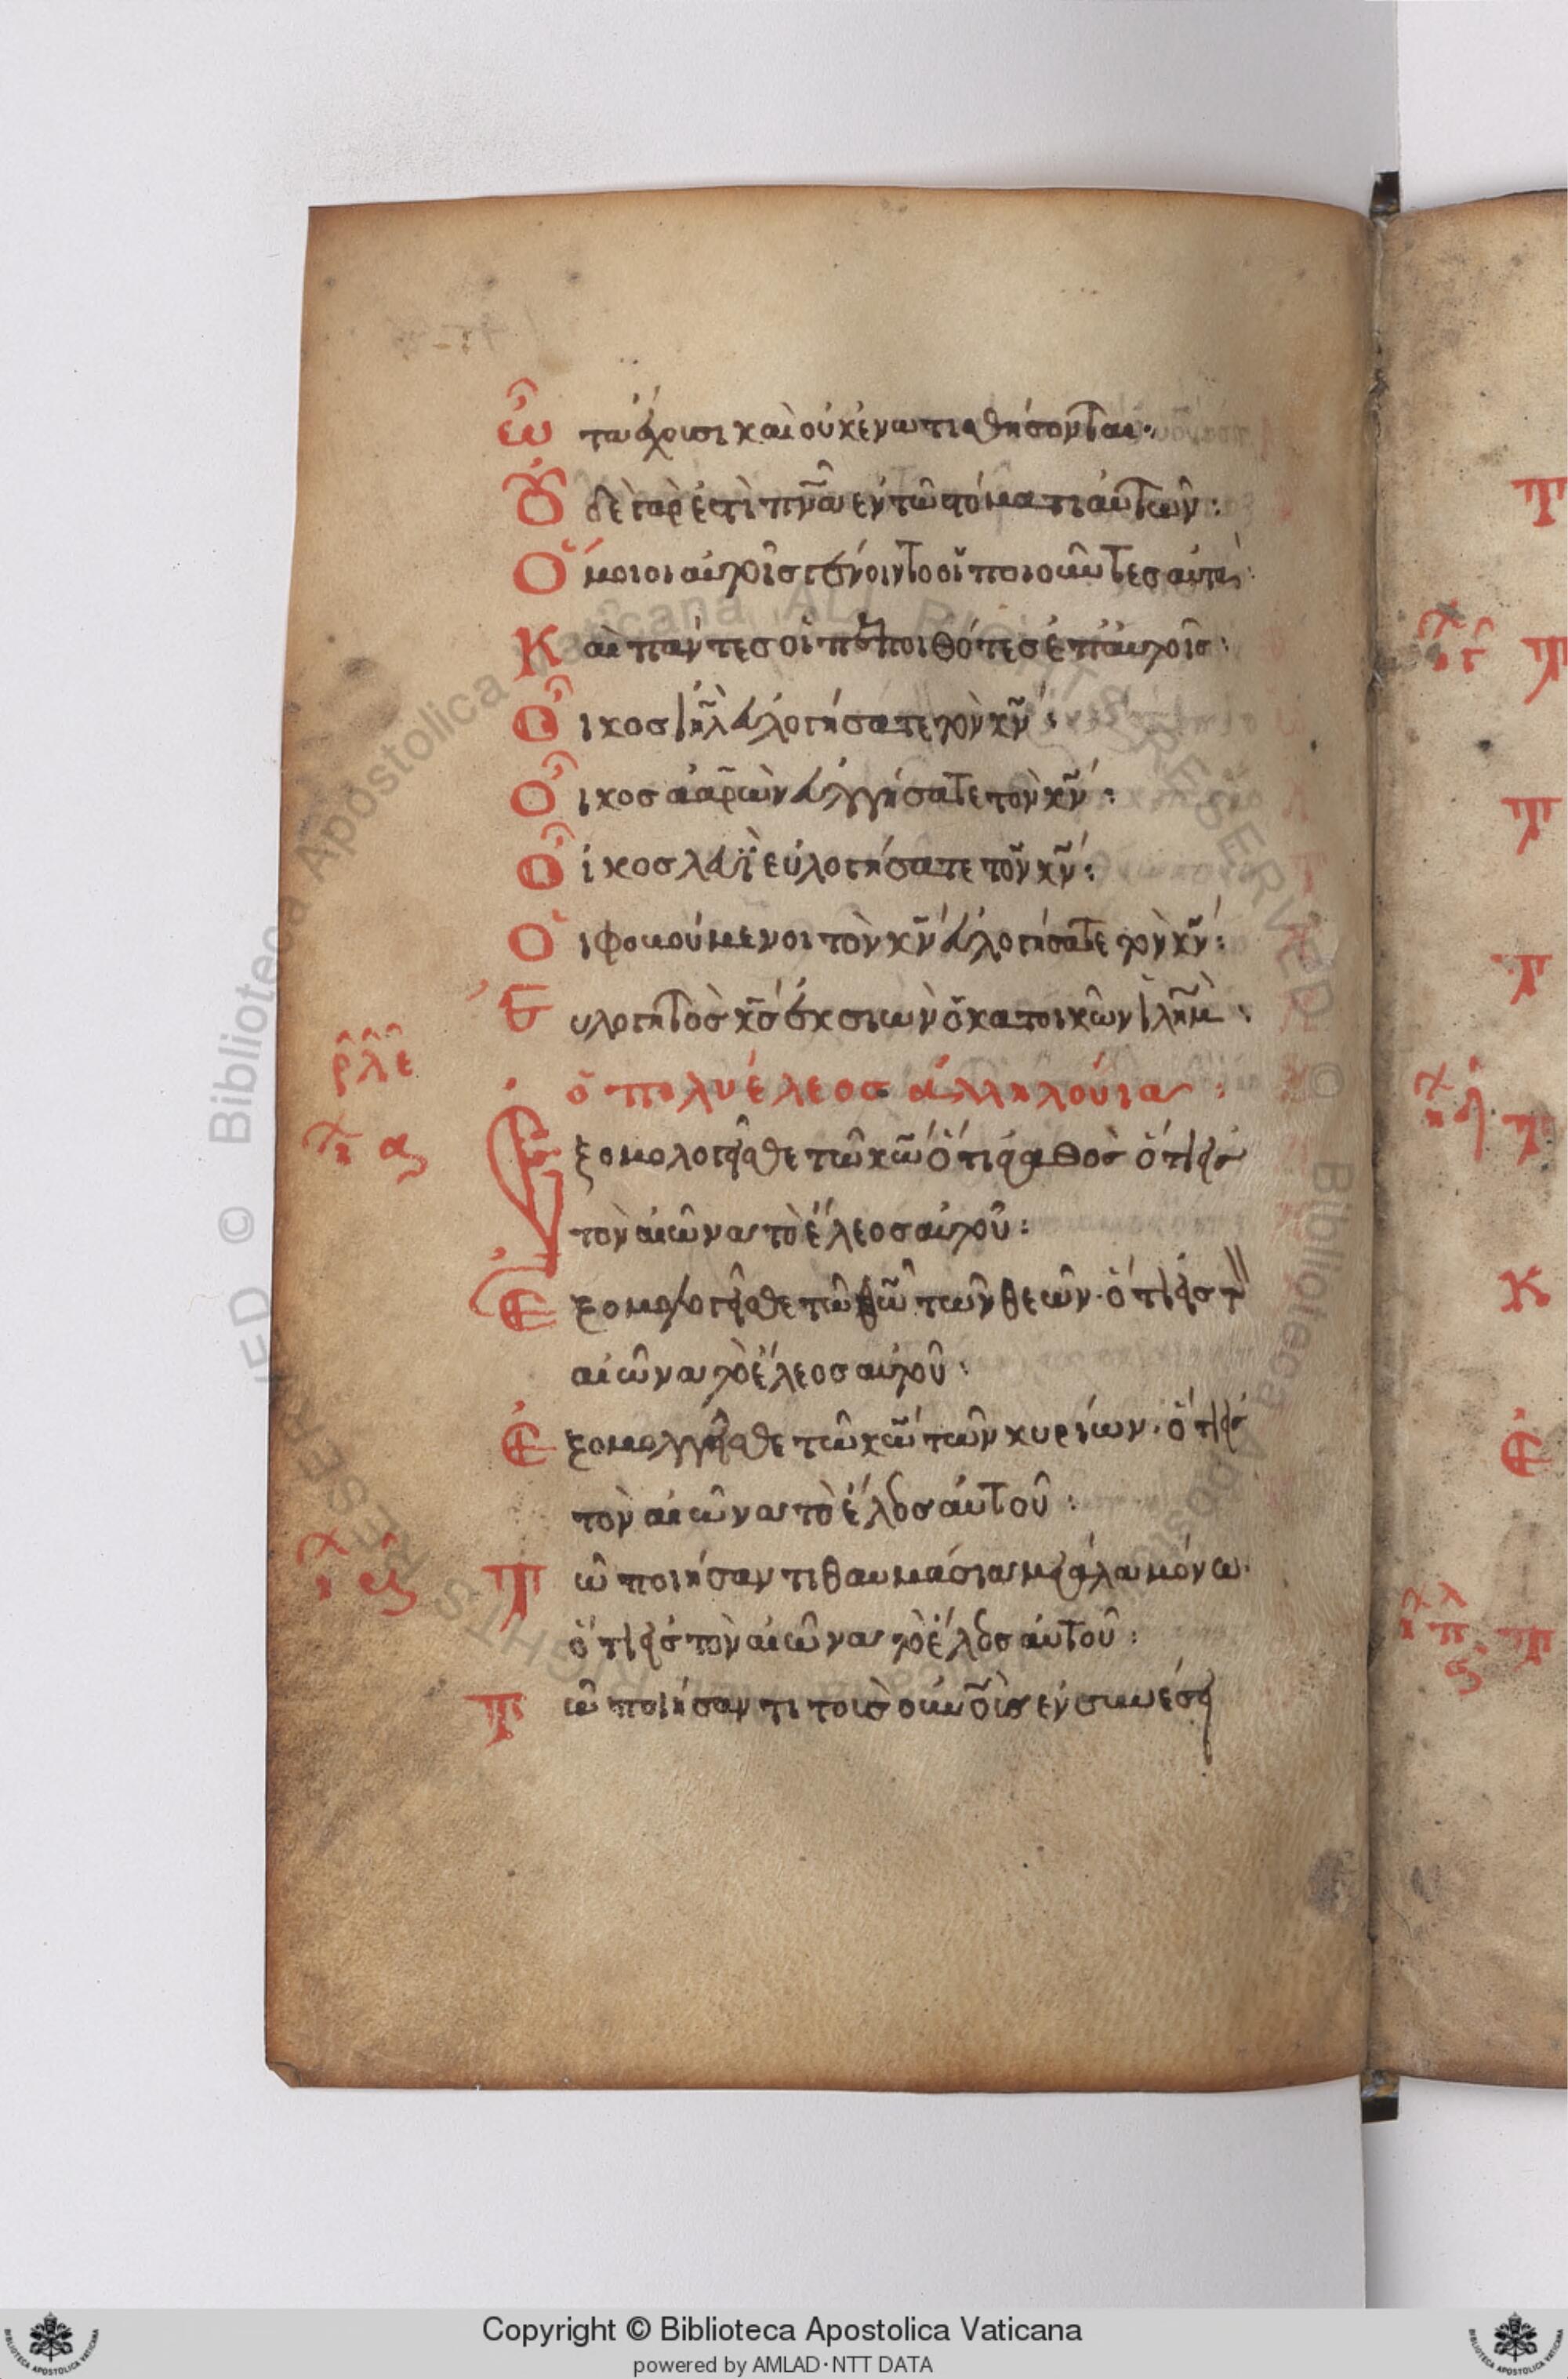 ὦτα ἔχουσι καὶ οὐκ ἐνωτισθήσονται·
Οὐδὲ γάρ ἐστὶ πνα ἐν τῶ στόματι αὐτῶν:
Ὅμοιοι αὐτοῖς γένοιντο οἱ ποιοῦντες αὐτά:
Καὶ πάντες οἱ πεποιθότες ἐπ αὐτοῖς:
Οἶκος ιηλ εὐλογήσατε τὸν κν:
Οἶκος ἀαρὼν εὐλογήσατε τὸν κν:
Οἶκος λευῒ εὐλογήσατε τὸν κν:
Οἱ φοβούμενοι τὸν κν εὐλογήσατε τὸν κν:
Εὐλογητὸς κς ἐκ σιὼν ὁ κατοικῶν ιλημ:
ρλε
ὁ πολυέλεος ἀλληλούια:
Ἐξομολογεῖσθε τῶ κω ὅτι ἀγαθὸς ὅτι εἰς
τὸν αἰῶνα τὸ ἔλεος αὐτοῦ:
Ἐξομολογεῖσθε τῶ θω τῶν θεῶν· ὅτι εἰς τὸν
αἰῶνα τὸ ἔλεος αὐτοῦ:
Ἐξομολογεῖσθε τῶ κω τῶν κυρίων· ὅτι εἰς
τὸν αἰῶνα τὸ ἔλεος αὐτοῦ:
Τῶ ποιήσαντι θαυμάσια μεγάλα μόνω·
ὅτι εἰς τὸν αἰῶνα τὸ ἔλεος αὐτοῦ:
Τῶ ποιήσαντι τοὺς οὐνους ἐν συνέσει
Copyright © Biblioteca Apostolica Vaticana
powered by AMLAD·NTT DATA